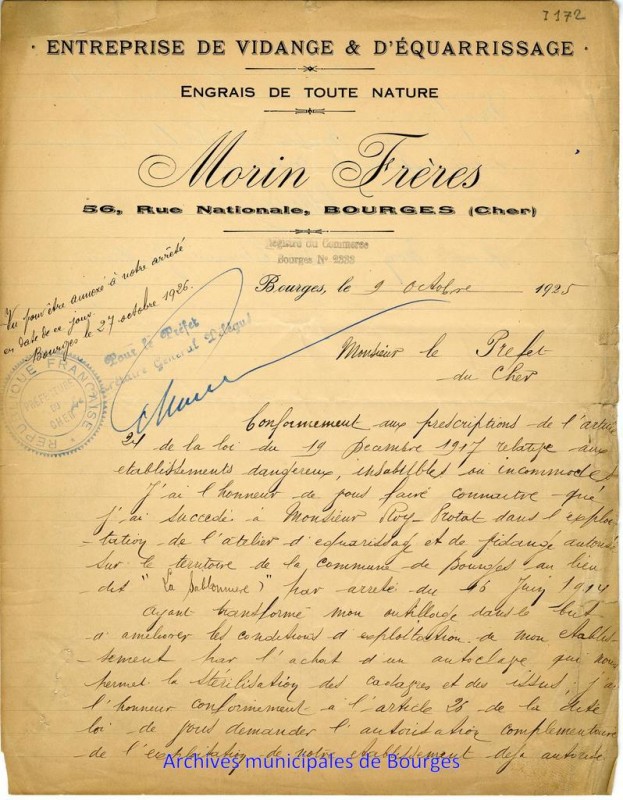 I 172
· ENTREPRISE DE VIDANGE & D'ÉQUARRISSAGE ·
ENGRAIS DE TOUTE NATURE
Morin Frères
56, Rue Nationale, BOURGES (Cher)
Registre du Commerce
Bourges N° 2333
Bourges, le 9 Octobre 1925
Vu pour être annexé à notre arrêté
en date de ce jour.
Bourges le 27 octobre 1926.
Pour le Préfet
Secrétaire Général Délégué
RÉPUBLIQUE FRANÇAISE
PRÉFECTURE
DU
CHER
Monsieur le Prefet
du Cher
Conformement aux prescriptions de l'article
24 de la loi du 19 Decembre 1917 relative aux
etablissements dangereux, insalubles ou incommodes
J'ai l'honneur de vous faire connaitre que
j'ai succedé à Monsieur Roy-Protat dans l'exploi-
-tation de l'atelier d'equarissage et de vidange autorisé
sur le territoire de la commune de Bourges au lieu
dit "La Sablonniere" par arreté du 16 Juin 1914
ayant transformé mon outillage dans le but
d'améliorer les conditions d'exploitation de mon etablis-
-sement par l'achat d'un autoclave qui nous
permet la stérilisation des cadavres et des issus, j'ai
l'honneur conformement à l'article 26 de la dite
loi de vous demander l'autorisation complementaire
de l'exploitation de notre etablissement deja autorisé
Archives municipales de Bourges